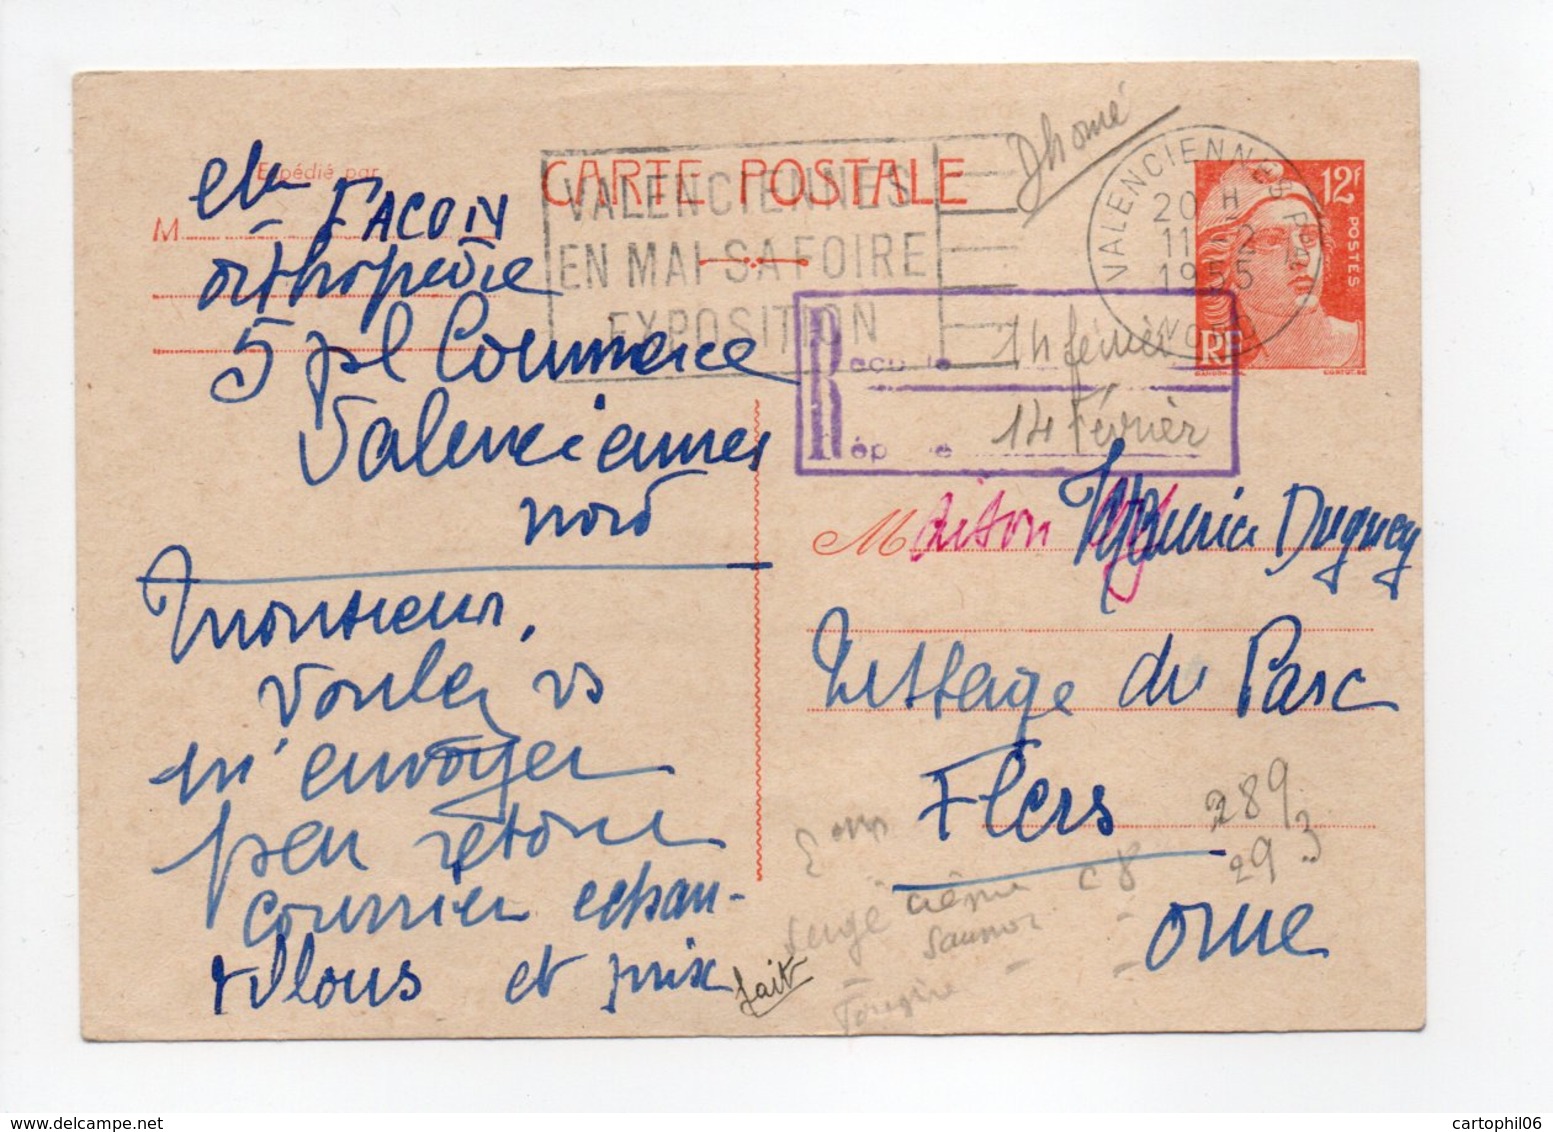 Expédié par
CARTE POSTALE
Dhomé
VALENCIENNES
EN MAI SA FOIRE
EXPOSITION
VALENCIENNES
20 H
11 - 2
1955
NORD
12F
POSTES
RF
M
FACON
orthopédie
5 pl Commerce
Valenciennes
nord
Reçu le 14 février
Rép le 14 Février
Maison Maurice Duguey
Tissage du Parc
Flers
Orne
Monsieur,
Voulez vs
m'envoyer
par retour
courrier echan-
tillons et prix
fait
289
29 3
C 8
Serge
crème
saumon